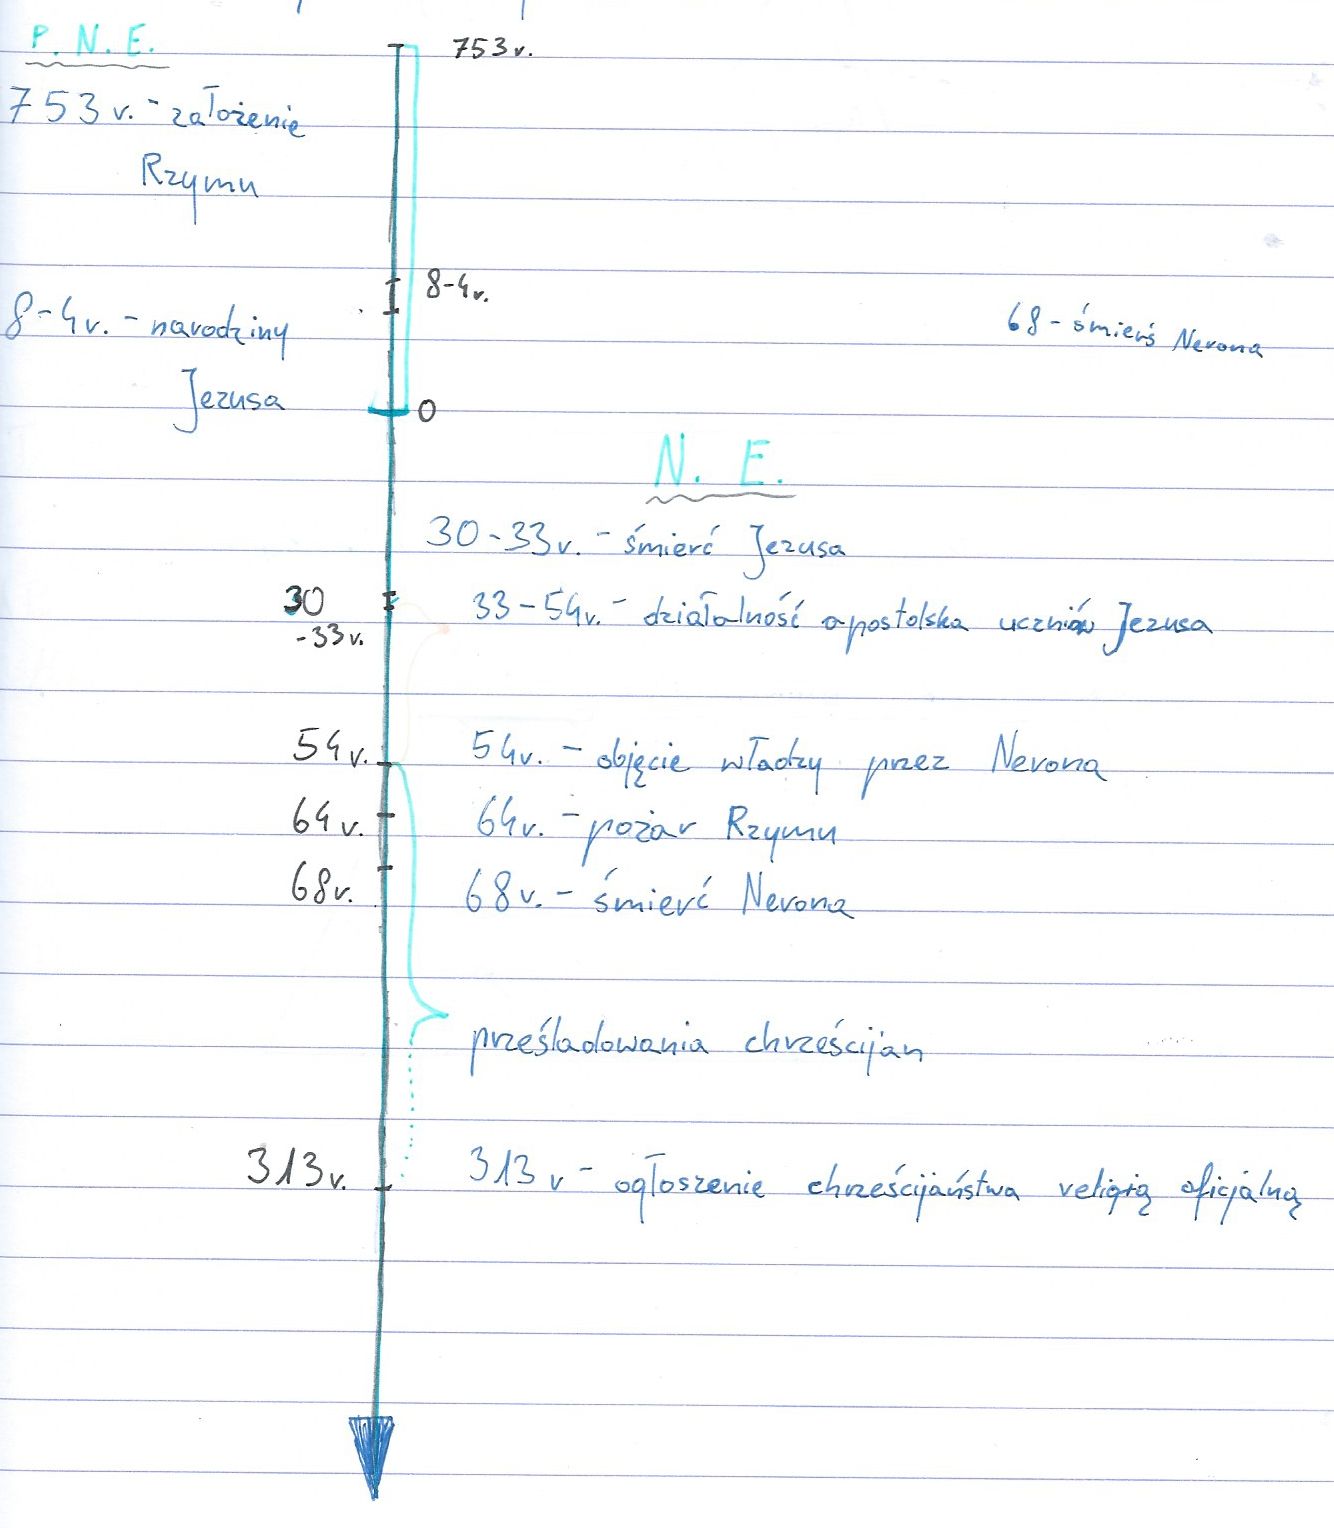 P. N. E.
753 r.
753 r. - założenie
Rzymu
8-4r.
8-4r. - narodziny
Jezusa
68 - śmierś Nerona
0
N. E.
30-33r. - śmierć Jezusa
30
-33r.
33-54r. - działalność apostolska uczniów Jezusa
54r.
54r. - objęcie władzy przez Nerona
64r.
64r. - pożar Rzymu
68r.
68r. - śmierć Nerona
prześladowania chrześcijan
313r.
313r - ogłoszenie chrześcijaństwa religią oficjalną